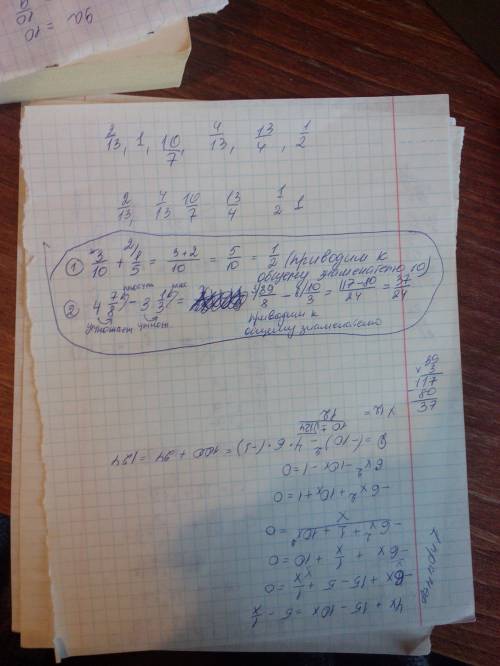 2/13, 1, 10/7, 4/13, 13/4, 1/2
2/13, 4/13 10/7 13/4 1/2 1
① 3/10 + 1/5 = 3+2/10 = 5/10 = 1/2 (приводим к
общему знаменателю 10)
② 4 7/8 - 3 1/3 = 39/8 - 10/3 = 117-80/24 = 37/24
приводим к
общему знаменателю
39
× 3
117
- 80
37
4x + 15 - 10x = 5 - 1/x
-6x + 15 - 5 + 1/x = 0
-6x + 1/x + 10 = 0
-6x² + 1 + 10x / x = 0
-6x² + 10x + 1 = 0
6x² - 10x - 1 = 0
D = (-10)² - 4 · 6 · (-1) = 100 + 24 = 124
10 ± √124 / 12